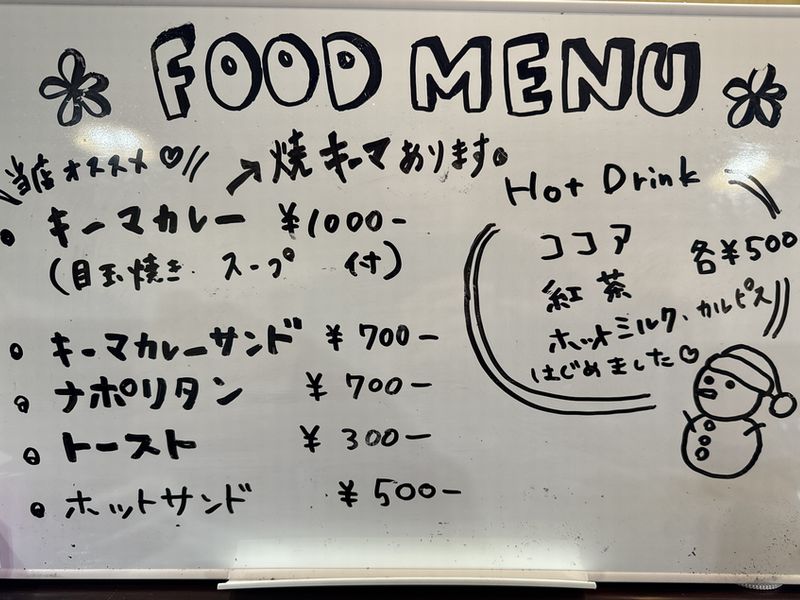 FOOD MENU
当店オススメ♡//
↗焼キーマあります。
・キーマカレー ¥1000-
(目玉焼き. スープ 付)
・キーマカレーサンド ¥700-
・ナポリタン ¥700-
・トースト ¥300-
・ホットサンド ¥500-
Hot Drink
ココア
各¥500
紅茶
ホットミルク、カルピス
はじめました♡